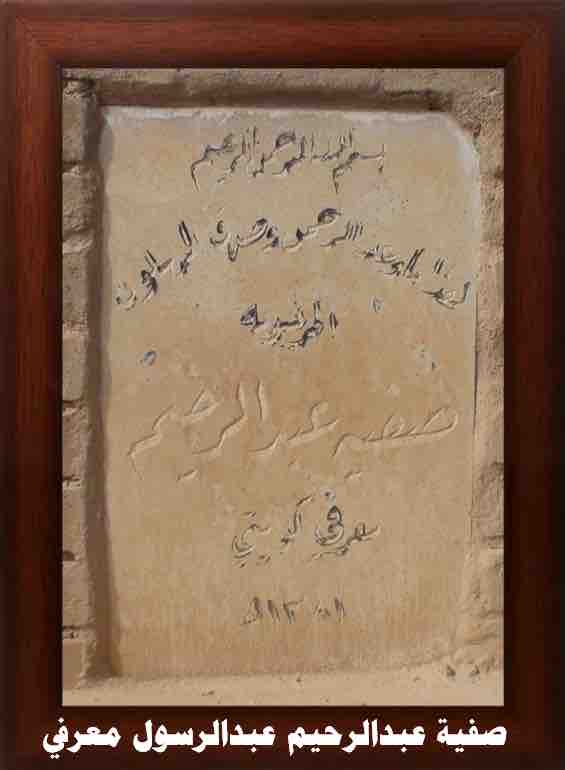 بسم الله الرحمن الرحيم
هذا ما وعد الرحمن وصدق المرسلون
صفيه عبدالرحيم
معرفي كويتي
صفية عبدالرحيم عبدالرسول معرفي